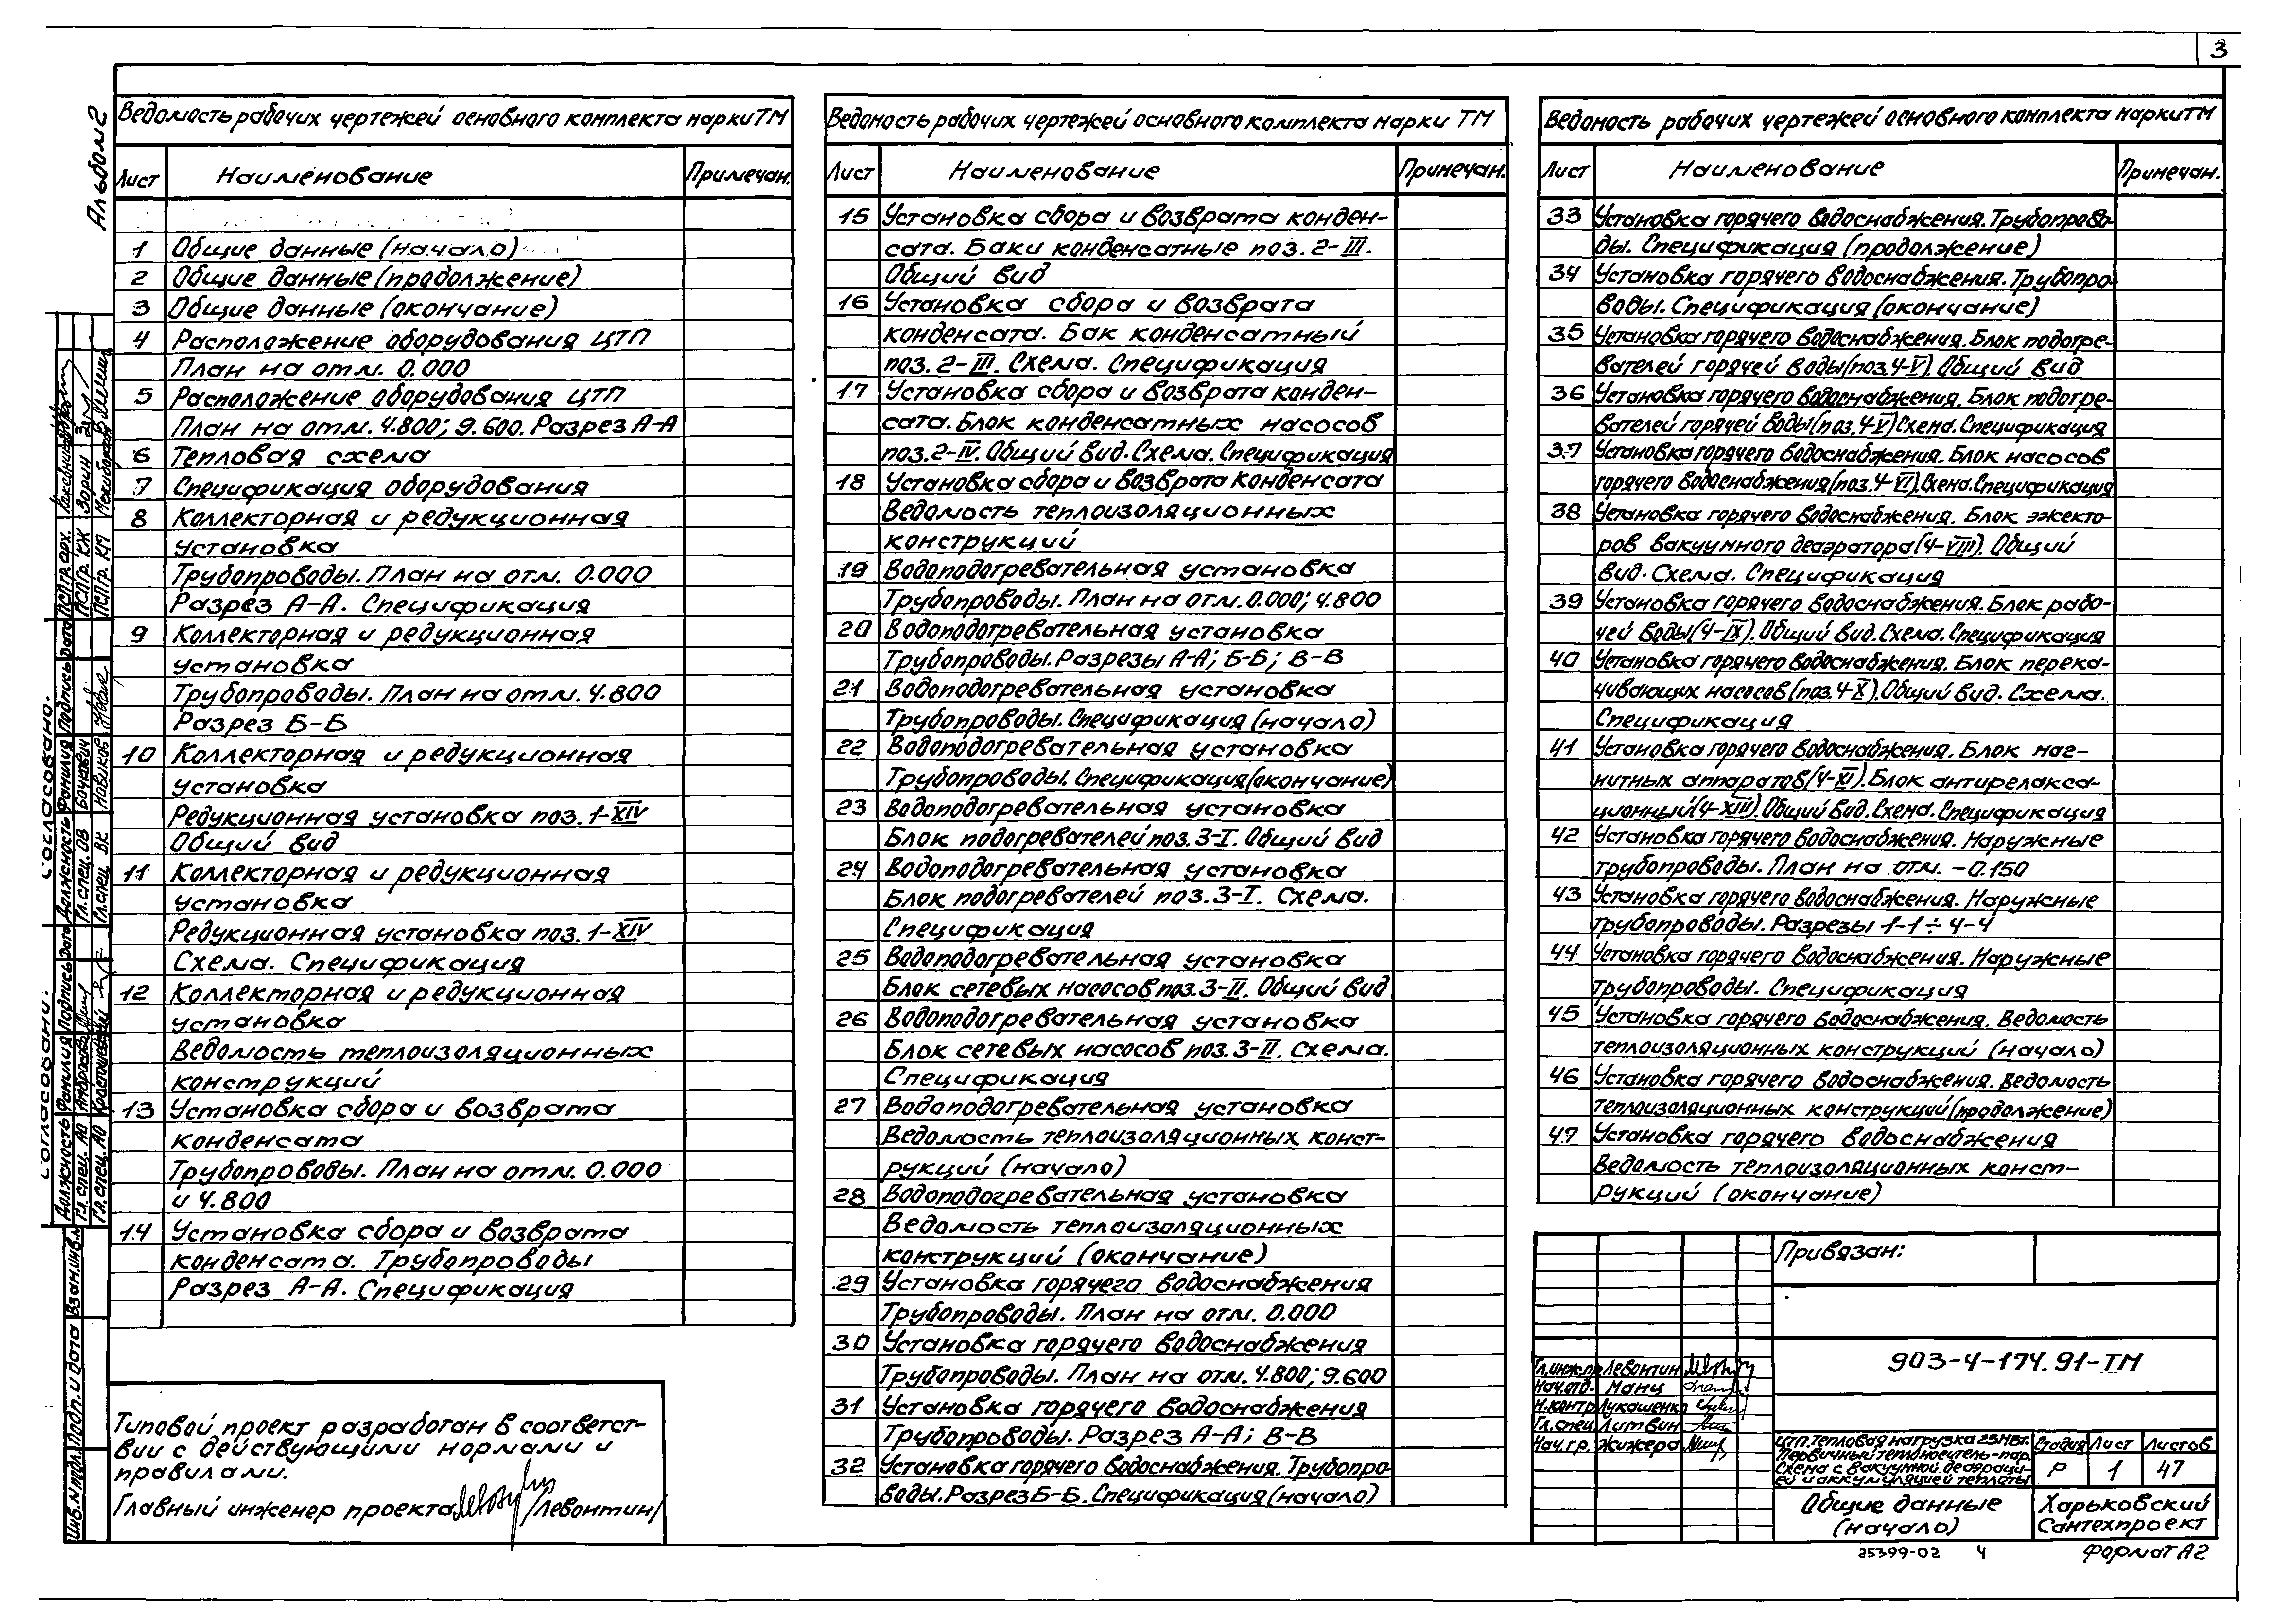 3
Альбом 2
Ведомость рабочих чертежей основного комплекта марки ТМ
Лист Наименование Примечан.
1 Общие данные (начало)
2 Общие данные (продолжение)
3 Общие данные (окончание)
4 Расположение оборудования ЦТП
План на отм. 0.000
5 Расположение оборудования ЦТП
План на отм. 4.800; 9.600. Разрез А-А
6 Тепловая схема
7 Спецификация оборудования
8 Коллекторная и редукционная
установка
Трубопроводы. План на отм. 0.000
Разрез А-А. Спецификация
9 Коллекторная и редукционная
установка
Трубопроводы. План на отм. 4.800
Разрез Б-Б
10 Коллекторная и редукционная
установка
Редукционная установка поз. 1-XIV
Общий вид
11 Коллекторная и редукционная
установка
Редукционная установка поз. 1-XIV
Схема. Спецификация
12 Коллекторная и редукционная
установка
Ведомость теплоизоляционных
конструкций
13 Установка сбора и возврата
конденсата
Трубопроводы. План на отм. 0.000
и 4.800
14 Установка сбора и возврата
конденсата. Трубопроводы
Разрез А-А. Спецификация
Типовой проект разработан в соответст-
вии с действующими нормами и
правилами.
Главный инженер проекта /Левонтин/
Ведомость рабочих чертежей основного комплекта марки ТМ
Лист Наименование Примечан.
15 Установка сбора и возврата конден-
сата. Баки конденсатные поз. 2-III.
Общий вид
16 Установка сбора и возврата
конденсата. Бак конденсатный
поз. 2-III. Схема. Спецификация
17 Установка сбора и возврата конден-
сата. Блок конденсатных насосов
поз. 2-IV. Общий вид. Схема. Спецификация
18 Установка сбора и возврата конденсата
Ведомость теплоизоляционных
конструкций
19 Водоподогревательная установка
Трубопроводы. План на отм. 0.000; 4.800
20 Водоподогревательная установка
Трубопроводы. Разрезы А-А; Б-Б; В-В
21 Водоподогревательная установка
Трубопроводы. Спецификация (начало)
22 Водоподогревательная установка
Трубопроводы. Спецификация (окончание)
23 Водоподогревательная установка
Блок подогревателей поз. 3-I. Общий вид
24 Водоподогревательная установка
Блок подогревателей поз. 3-I. Схема.
Спецификация
25 Водоподогревательная установка
Блок сетевых насосов поз. 3-II. Общий вид
26 Водоподогревательная установка
Блок сетевых насосов поз. 3-II. Схема.
Спецификация
27 Водоподогревательная установка
Ведомость теплоизоляционных конст-
рукций (начало)
28 Водоподогревательная установка
Ведомость теплоизоляционных
конструкций (окончание)
29 Установка горячего водоснабжения
Трубопроводы. План на отм. 0.000
30 Установка горячего водоснабжения
Трубопроводы. План на отм. 4.800; 9.600
31 Установка горячего водоснабжения
Трубопроводы. Разрез А-А; В-В
32 Установка горячего водоснабжения. Трубопро-
воды. Разрез Б-Б. Спецификация (начало)
Ведомость рабочих чертежей основного комплекта марки ТМ
Лист Наименование Примечан.
33 Установка горячего водоснабжения. Трубопрово-
ды. Спецификация (продолжение)
34 Установка горячего водоснабжения. Трубопро-
воды. Спецификация (окончание)
35 Установка горячего водоснабжения. Блок подогре-
вателей горячей воды (поз. 4-V). Общий вид
36 Установка горячего водоснабжения. Блок подогре-
вателей горячей воды (поз. 4-V) Схема. Спецификация
37 Установка горячего водоснабжения. Блок насосов
горячего водоснабжения (поз. 4-VI). Схема. Спецификация
38 Установка горячего водоснабжения. Блок эжекто-
ров вакуумного деаэратора (4-VIII). Общий
вид. Схема. Спецификация
39 Установка горячего водоснабжения. Блок рабо-
чей воды (4-IX). Общий вид. Схема. Спецификация
40 Установка горячего водоснабжения. Блок перека-
чивающих насосов (поз. 4-X). Общий вид. Схема.
Спецификация
41 Установка горячего водоснабжения. Блок маг-
нитных аппаратов (4-XI). Блок антирелакса-
ционный (4-XIII). Общий вид. Схема. Спецификация
42 Установка горячего водоснабжения. Наружные
трубопроводы. План на отм. -0.150
43 Установка горячего водоснабжения. Наружные
трубопроводы. Разрезы 1-1÷4-4
44 Установка горячего водоснабжения. Наружные
трубопроводы. Спецификация
45 Установка горячего водоснабжения. Ведомость
теплоизоляционных конструкций (начало)
46 Установка горячего водоснабжения. Ведомость
теплоизоляционных конструкций (продолжение)
47 Установка горячего водоснабжения
Ведомость теплоизоляционных конст-
рукций (окончание)
Привязан:
903-4-174.91-ТМ
Гл.инж.пр Левонтин
Нач.отд. Манц
Н.контр Лукашенко
Гл.спец Литвин
Нач.гр. Жижера
ЦТП. Тепловая нагрузка 25 МВт.
Первичный теплоноситель-пар.
Схема с вакуумной деаэраци-
ей и аккумуляцией теплоты
Стадия Лист Листов
Р 1 47
Общие данные
(начало)
Харьковский
Сантехпроект
25399-02 4 Формат А2
Согласовано:
Должность Фамилия Подпись Дата
Гл. спец. АО
Гл. спец. АО
Согласовано.
Должность Фамилия Подпись Дата
Гл. спец. ОВ
Гл. спец. ВК Новиков
ПСГгр. арх.
ПСГгр. КЖ Зорин
ПСГгр. КМ
Инв. N подл. Подп. и дата Взам.инв.N